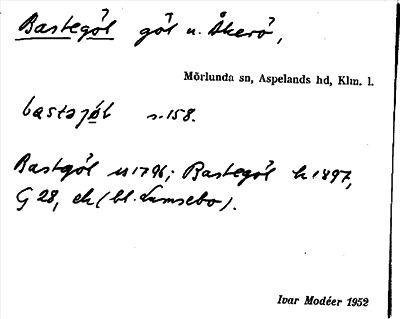 Bastegöl göl n. Åkerö,
Mörlunda sn, Aspelands hd, Klm. l.
s. 158.
Bastgöl 1796; Bastegöl k 1897,
G 28, ek (bl. Lamsebo).
Ivar Modéer 1952